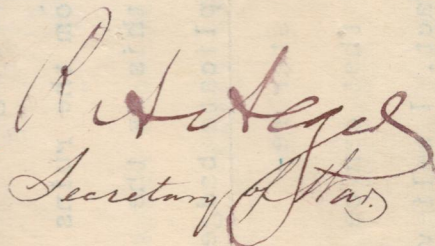 R A Alger
Secretary of War.